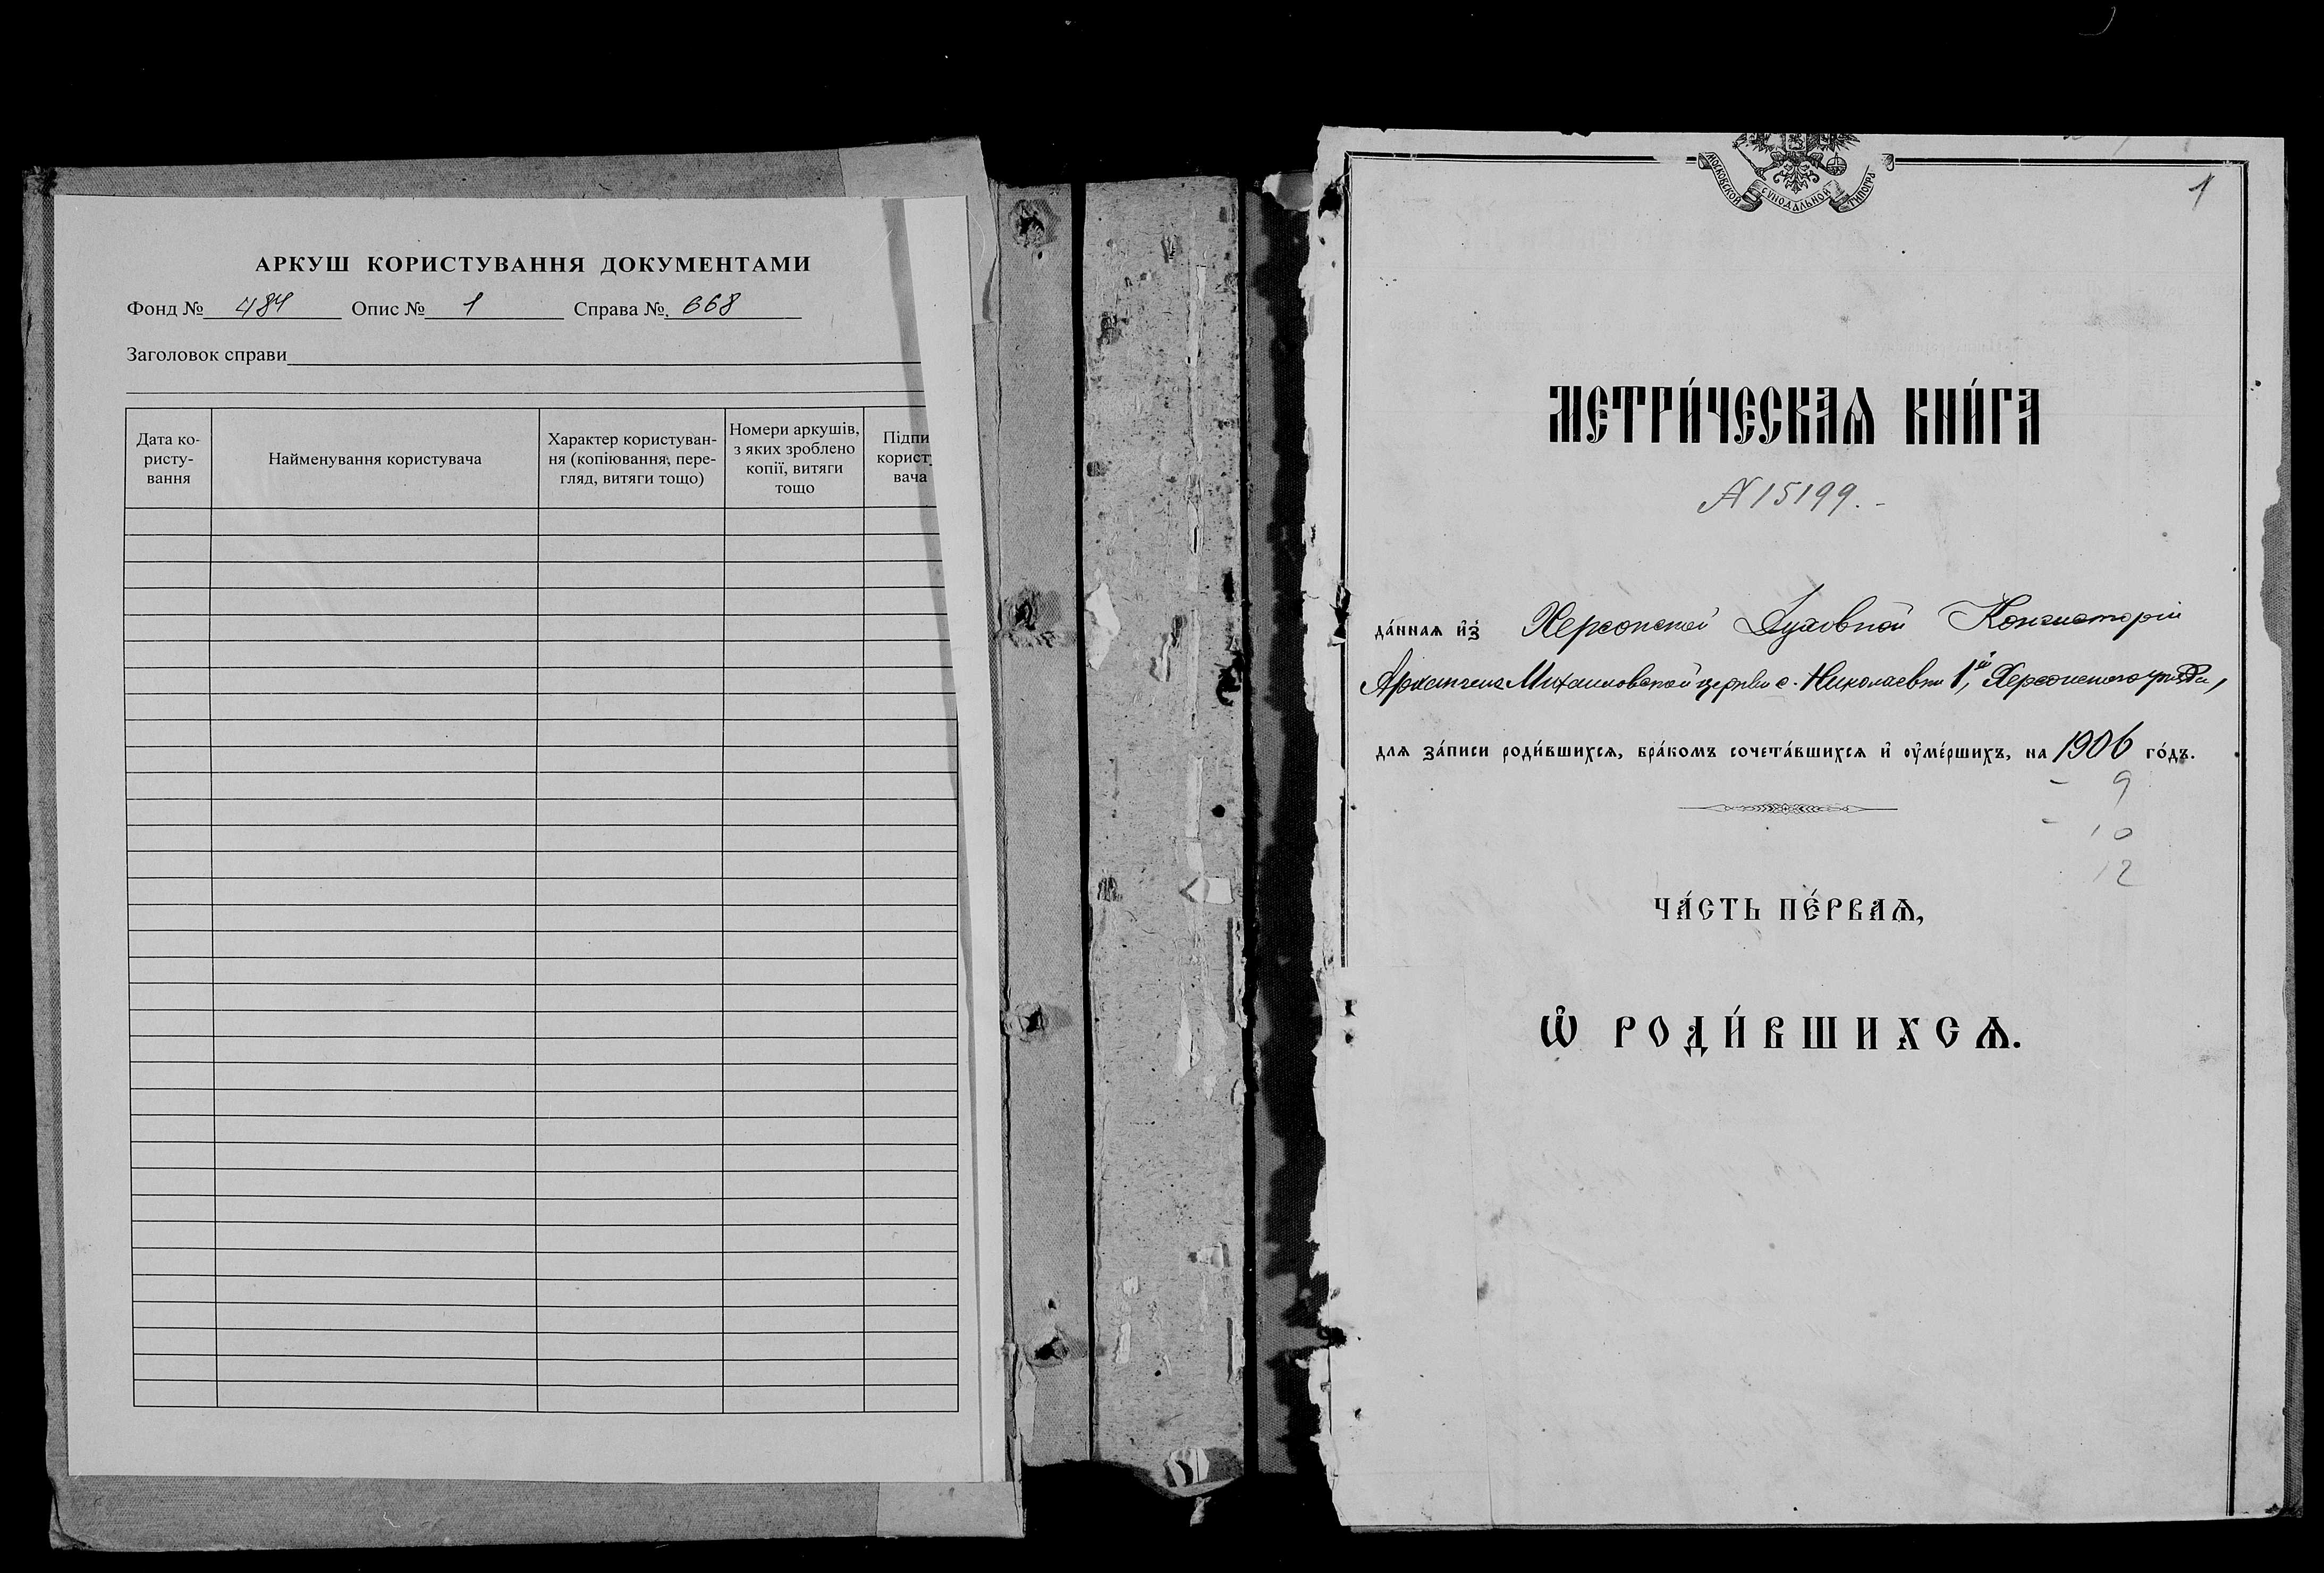 АРКУШ КОРИСТУВАННЯ ДОКУМЕНТАМИ
Фонд № 484 Опис № 1 Справа №. 668
Заголовок справи
Дата ко-
ристу-
вання
Найменування користувача
Характер користуван-
ня (копіювання, пере-
гляд, витяги тощо)
Номери аркушів,
з яких зроблено
копії, витяги
тощо
Підпи
корист
вача
МОСКОВСКОЙ СѴНОДАЛЬНОЙ ТИПОГРА
1
МЕТРИ́ЧЕСКАѦ КНИ́ГА
№ 15199.-
да́ннаѧ и҆з̾ Херсонской Духовной Консисторіи
Архангело Михаиловской церкви с. Николаевки 1й, Херсонского уезда,
длѧ за́писи роди́вшихсѧ, бра́комъ сочета́вшихсѧ и҆ ᲂу҆ме́ршихъ, на 1906 го́дъ.
- 9
- 10
12
ЧА́СТЬ ПЕ́РВАѦ,
Ѽ РОДИ́ВШИХСѦ.